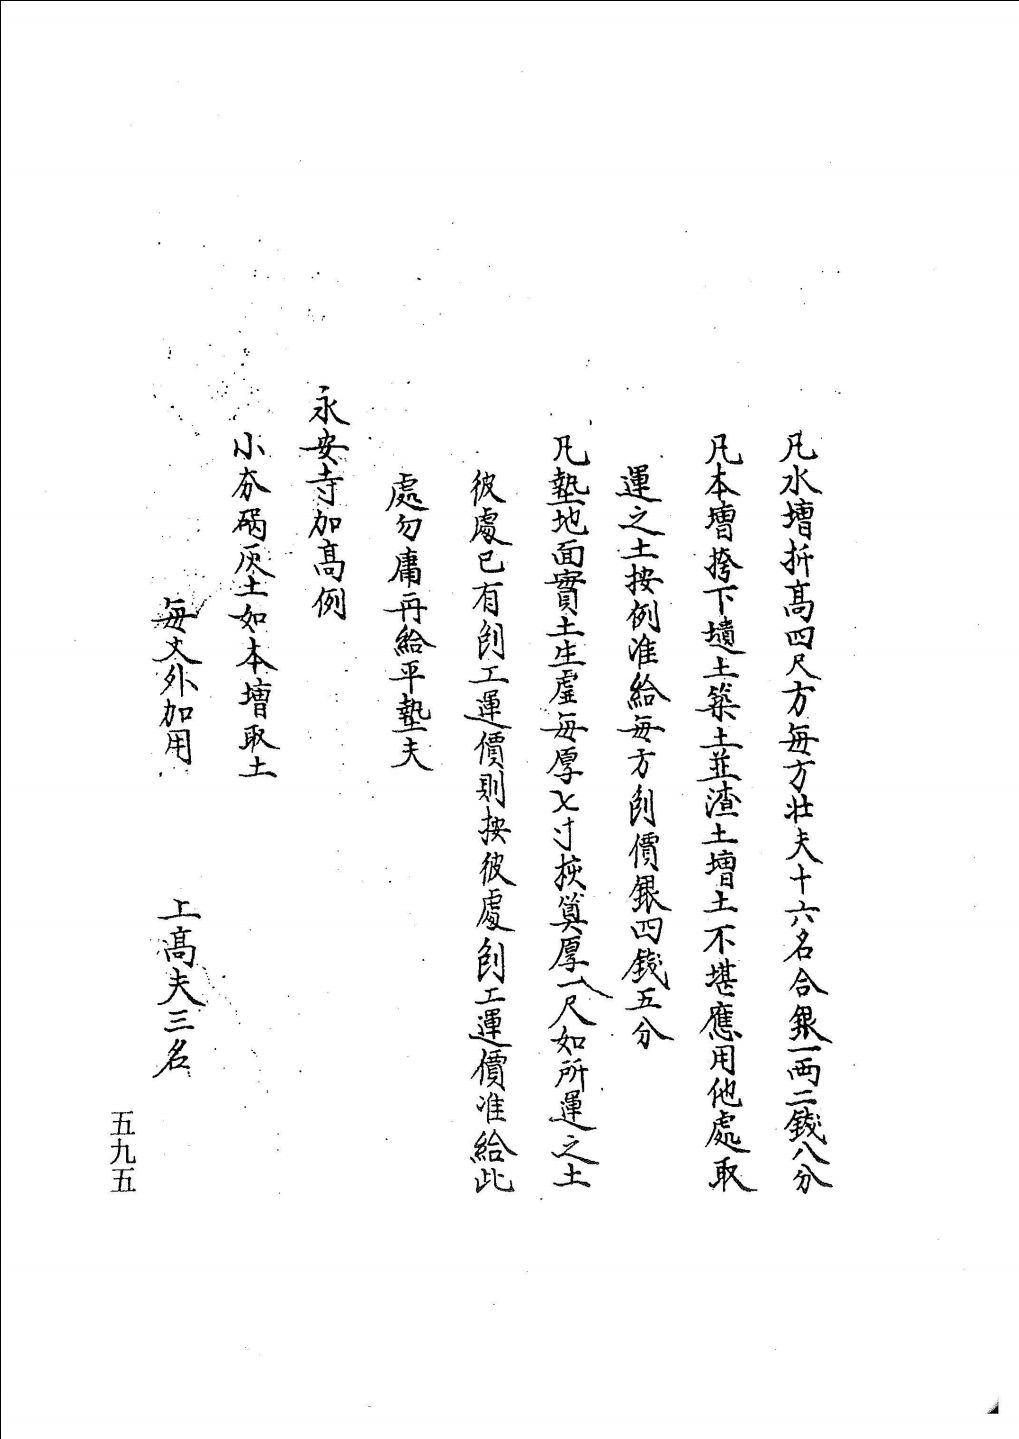 凡水墻折髙四尺方每方壮夫十六名合銀一両二錢八分
凡本墻挎下墳土築土並渣土墻土不堪應用他處取
運之土按例准給每方刨價銀四錢五分
凡墊地面實土生虛每厚七寸挨算厚一尺如所運之土
彼處已有刨工運價則按彼處刨工運價准給此
處勿庸再給平墊夫
永安寺加髙例
小夯碢灰土如本墻取土
每丈外加用　上髙夫三名
五九五